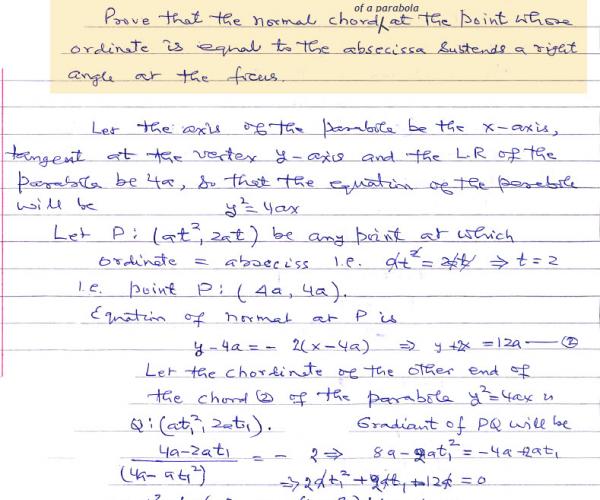 of a parabola
Prove that the normal chord at the point whose
ordinate is equal to the absecissa sustends a right
angle at the focus.
Let the axis of the parabola be the x-axis,
tangent at the vertex y-axis and the LR of the
parabola be 4a, so that the equation of the parabola
will be y²=4ax
Let P: (at², 2at) be any point at which
ordinate = abseciss i.e. at² = 2at ⇒ t = 2
i.e. point P: (4a, 4a).
Equation of normal at P is
y-4a = - 2(x-4a) ⇒ y+2x = 12a — ②
Let the chordinate of the other end of
the chord ② of the parabola y²=4ax is
Q: (at₁², 2at₁). Gradiant of PQ will be
4a-2at₁ / (4a-at₁²) = - 2 ⇒ 8a-2at₁² = -4a+2at₁
⇒ 2at₁² + 2at₁ - 12a = 0